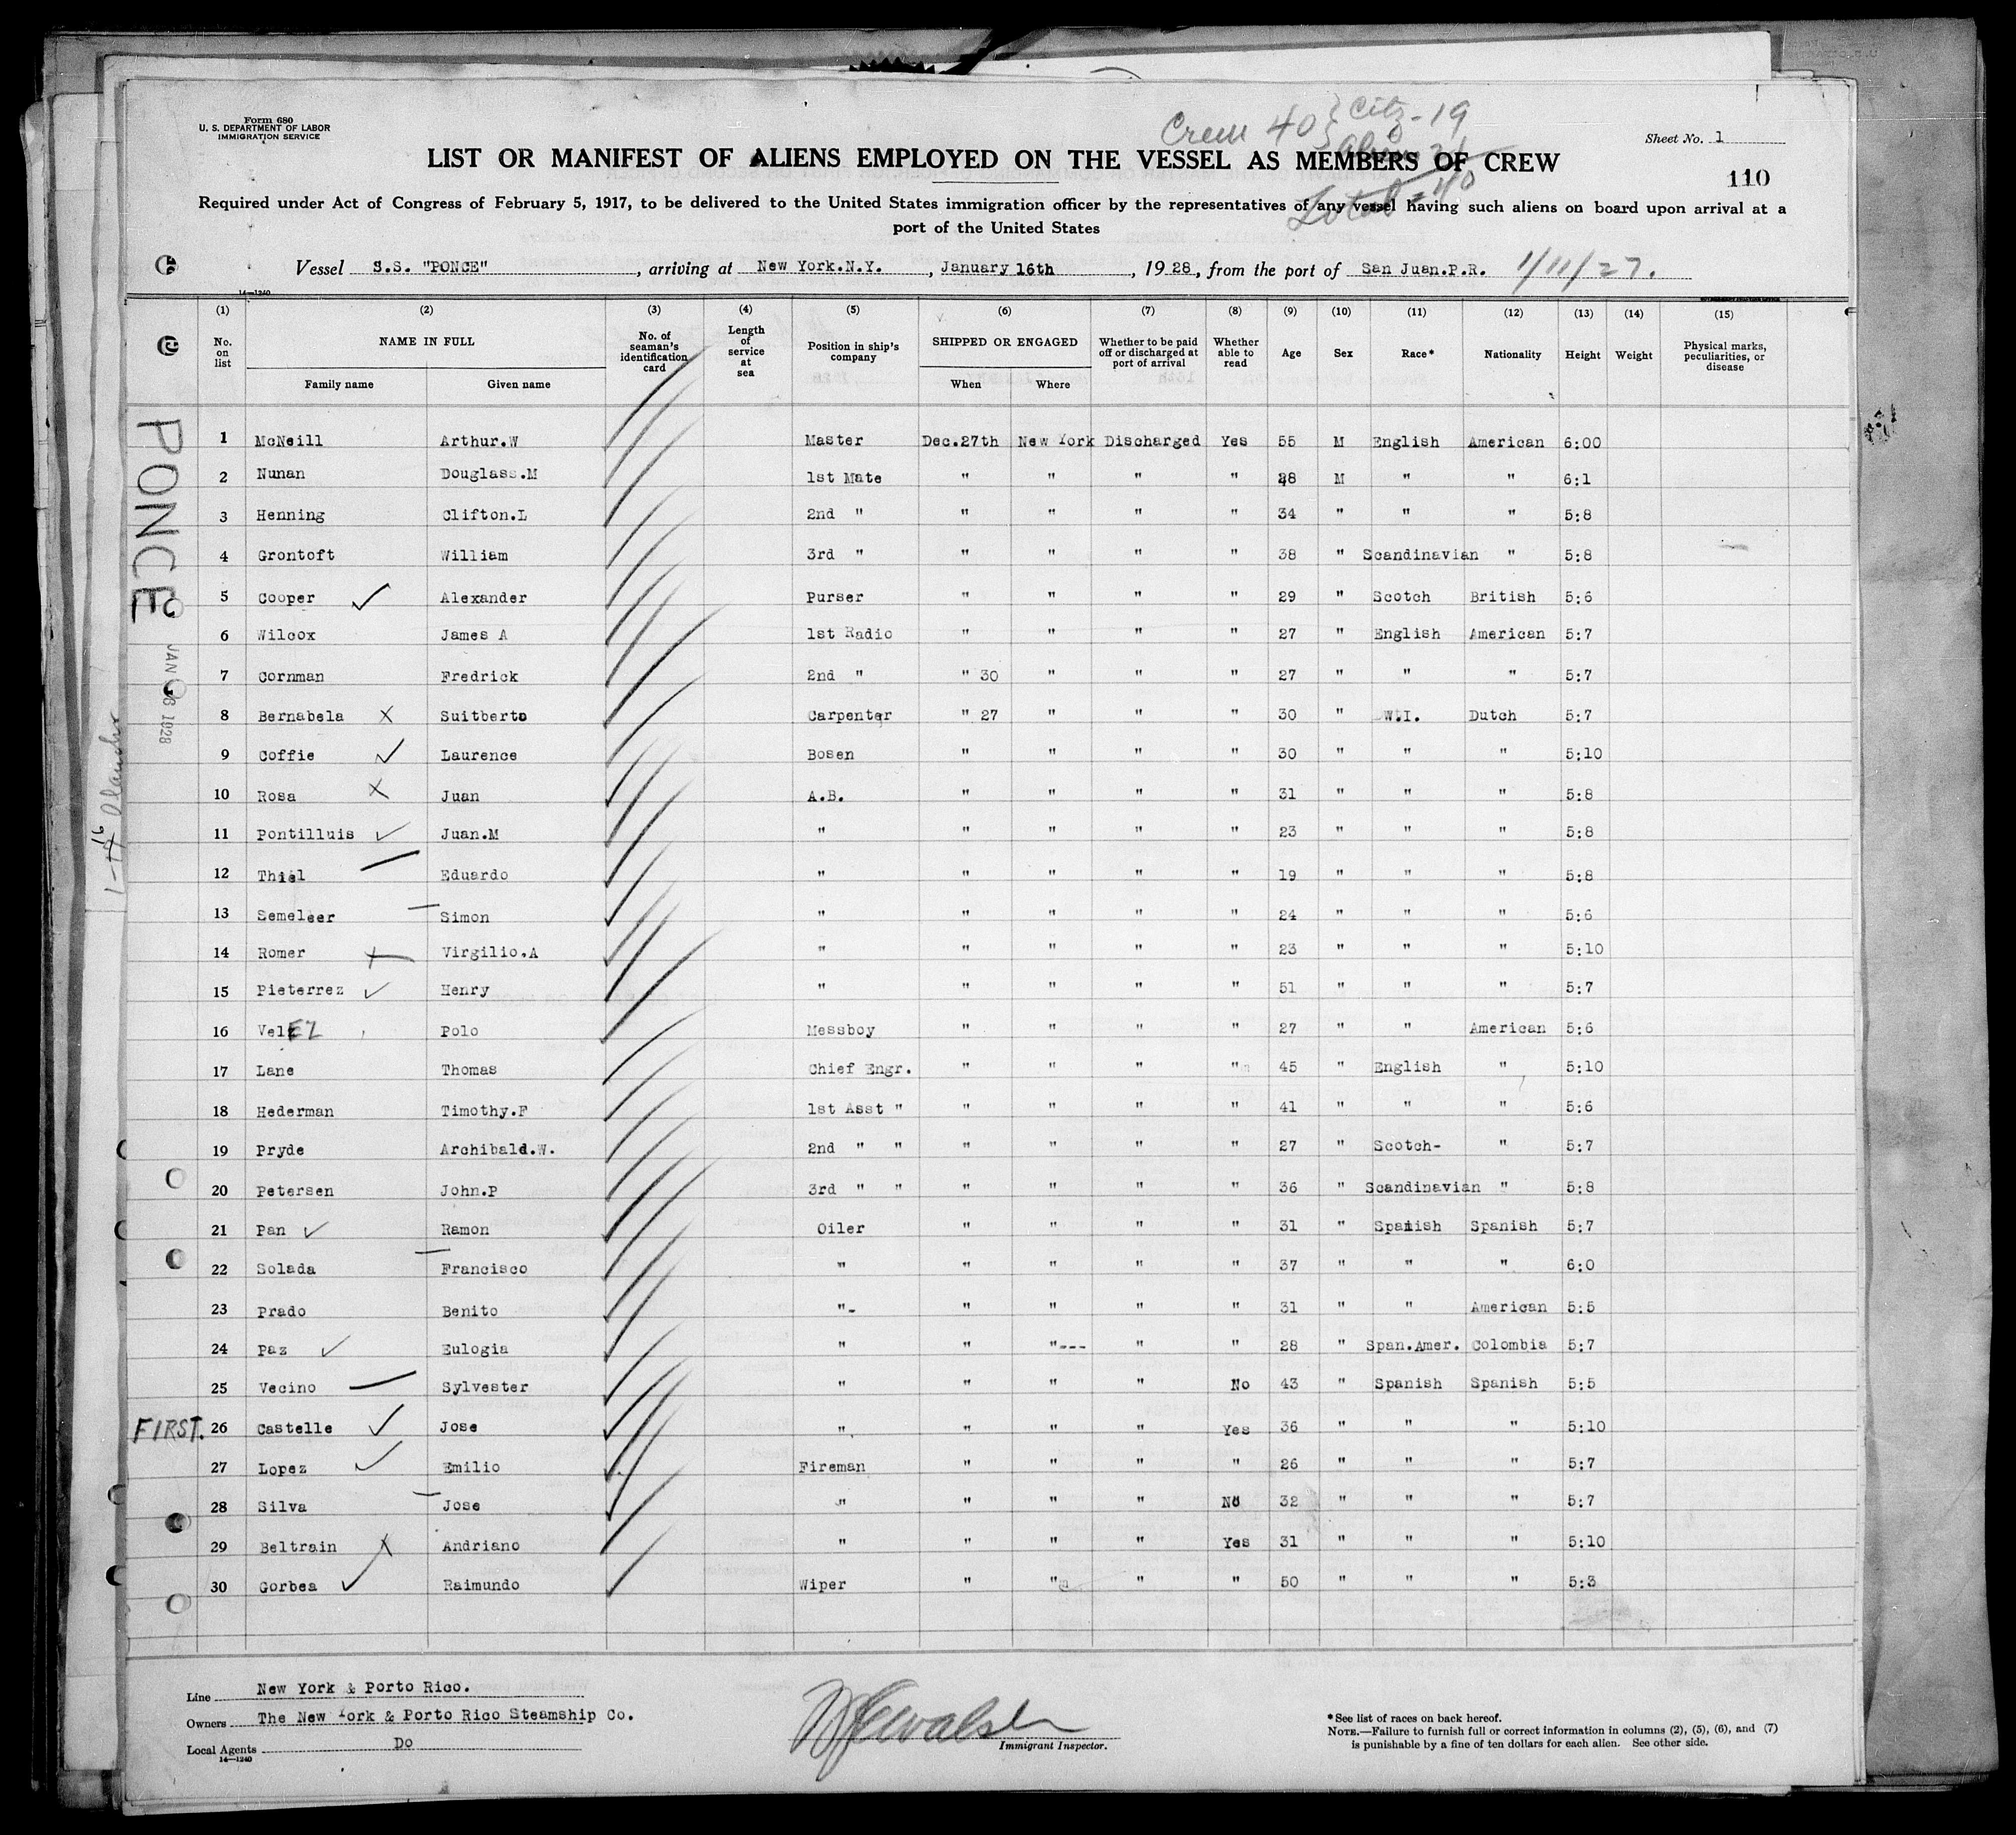 Form 680
U. S. DEPARTMENT OF LABOR
IMMIGRATION SERVICE
Crew 40 { Citz - 19
Alien 21
Total = 40
Sheet No. 1
LIST OR MANIFEST OF ALIENS EMPLOYED ON THE VESSEL AS MEMBERS OF CREW
110
Required under Act of Congress of February 5, 1917, to be delivered to the United States immigration officer by the representatives of any vessel having such aliens on board upon arrival at a
port of the United States
Vessel S.S. "PONCE", arriving at New York.N.Y., January 16th, 1928, from the port of San Juan.P.R. 1/11/27.
14—1240
(1) (2) (3) (4) (5) (6) (7) (8) (9) (10) (11) (12) (13) (14) (15)
No. on list | NAME IN FULL | No. of seaman's identification card | Length of service at sea | Position in ship's company | SHIPPED OR ENGAGED | Whether to be paid off or discharged at port of arrival | Whether able to read | Age | Sex | Race* | Nationality | Height | Weight | Physical marks, peculiarities, or disease
Family name | Given name | When | Where
1 McNeill Arthur.W Master Dec.27th New York Discharged Yes 55 M English American 6:00
2 Nunan Douglass.M 1st Mate " " " " 28 M " " 6:1
3 Henning Clifton.L 2nd " " " " " 34 " " " 5:8
4 Grontoft William 3rd " " " " " 38 " Scandinavian " 5:8
5 Cooper Alexander Purser " " " " 29 " Scotch British 5:6
6 Wilcox James A 1st Radio " " " " 27 " English American 5:7
7 Cornman Fredrick 2nd " " 30 " " " 27 " " " 5:7
8 Bernabela Suitberto Carpenter " 27 " " " 30 " W.I. Dutch 5:7
9 Coffie Laurence Bosen " " " " 30 " " " 5:10
10 Rosa Juan A.B. " " " " 31 " " " 5:8
11 Pontilluis Juan.M " " " " " 23 " " " 5:8
12 Thiel Eduardo " " " " " 19 " " " 5:8
13 Semeleer Simon " " " " " 24 " " " 5:6
14 Romer Virgilio.A " " " " " 23 " " " 5:10
15 Pieterrez Henry " " " " " 51 " " " 5:7
16 VelEZ Polo Messboy " " " " 27 " " American 5:6
17 Lane Thomas Chief Engr. " " " " 45 " English " 5:10
18 Hederman Timothy.F 1st Asst " " " " " 41 " " " 5:6
19 Pryde Archibald.W. 2nd " " " " " " 27 " Scotch- " 5:7
20 Petersen John.P 3rd " " " " " " 36 " Scandinavian " 5:8
21 Pan Ramon Oiler " " " " 31 " Spanish Spanish 5:7
22 Solada Francisco " " " " " 37 " " " 6:0
23 Prado Benito "- " " " " 31 " " American 5:5
24 Paz Eulogia " " "--- " " 28 " Span.Amer. Colombia 5:7
25 Vecino Sylvester " " " " No 43 " Spanish Spanish 5:5
FIRST. 26 Castelle Jose " " " " Yes 36 " " " 5:10
27 Lopez Emilio Fireman " " " " 26 " " " 5:7
28 Silva Jose " " " " No 32 " " " 5:7
29 Beltrain Andriano " " " " Yes 31 " " " 5:10
30 Gorbea Raimundo Wiper " " " " 50 " " " 5:3
PONCE
JAN 16 1928
Line New York & Porto Rico.
Owners The New York & Porto Rico Steamship Co.
Local Agents Do
14—1240
Immigrant Inspector.
*See list of races on back hereof.
NOTE.—Failure to furnish full or correct information in columns (2), (5), (6), and (7)
is punishable by a fine of ten dollars for each alien. See other side.